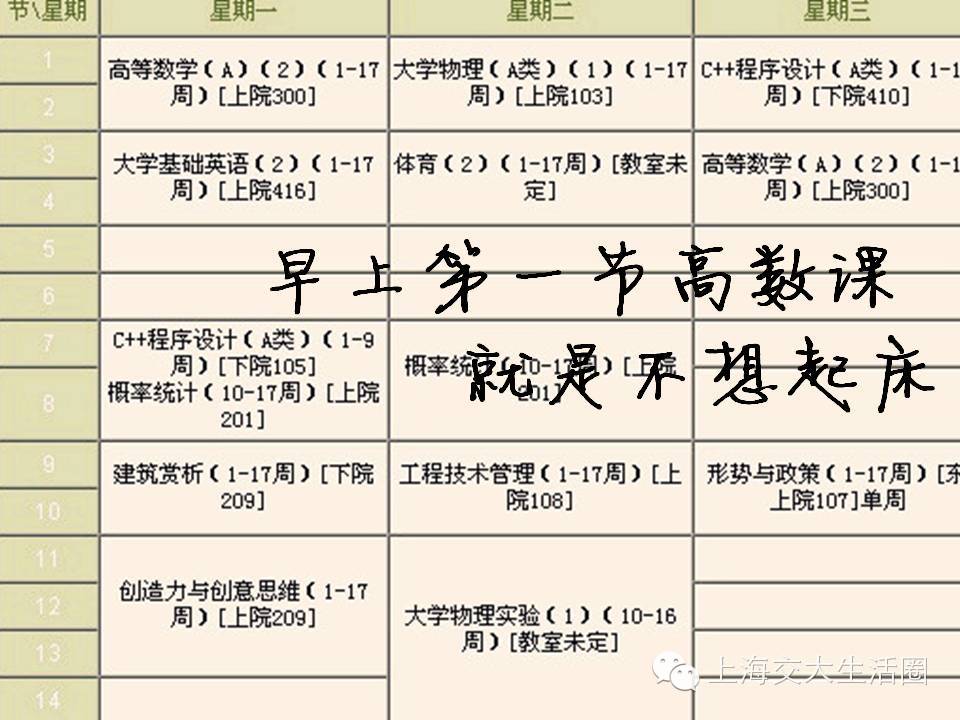 节\星期
星期一
星期二
星期三
1
高等数学(A)(2)(1-17
周)[上院300]
大学物理(A类)(1)(1-17
周)[上院103]
C++程序设计(A类)(1-1
周)[下院410]
2
3
大学基础英语(2)(1-17
周)[上院416]
体育(2)(1-17周)[教室未
定]
高等数学(A)(2)(1-1
周)[上院300]
4
5
早上第一节高数课
6
7
C++程序设计(A类)(1-9
周)[下院105]
概率统计(10-17周)[上院
201]
概率统计(10-17周)[上院
201]
就是不想起床
8
9
建筑赏析(1-17周)[下院
209]
工程技术管理(1-17周)[上
院108]
形势与政策(1-17周)[东
上院107]单周
10
11
创造力与创意思维(1-17
周)[上院209]
12
大学物理实验(1)(10-16
周)[教室未定]
13
14
上海交大生活圈